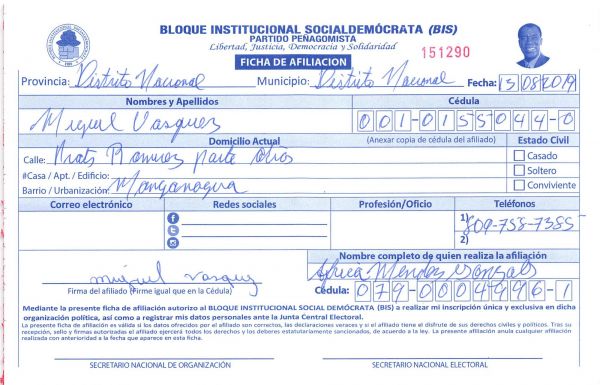 BLOQUE INSTITUCIONAL SOCIALDEMÓCRATA (BIS)
PARTIDO PEÑAGOMISTA
Libertad, Justicia, Democracia y Solidaridad
151290
FICHA DE AFILIACION
Provincia: Distrito Nacional Municipio: Distrito Nacional Fecha: 15/08/2019
Nombres y Apellidos Cédula
Miguel Vasquez 001-0155044-0
Domicilio Actual (Anexar copia de cédula del afiliado) Estado Civil
Calle: Prats Ramirez parte atras Casado
#Casa / Apt. / Edificio: Soltero
Barrio / Urbanización: Manganagua Conviviente
Correo electrónico Redes sociales Profesión/Oficio Teléfonos
1) 809-755-7385
2)
Nombre completo de quien realiza la afiliación
miguel vasquez Mendez
Firma del afiliado (Firme igual que en la Cédula) Cédula: 079-0004996-1
Mediante la presente ficha de afiliación autorizo al BLOQUE INSTITUCIONAL SOCIAL DEMÓCRATA (BIS) a realizar mi inscripción única y exclusiva en dicha
organización política, así como a registrar mis datos personales ante la Junta Central Electoral.
La presente ficha de afiliación es válida si los datos ofrecidos por el afiliado son correctos, las declaraciones veraces y si el afiliado tiene el disfrute de sus derechos civiles y políticos. Tras su
recepción, sello y firmas autorizadas el afiliado ejercerá todos los derechos y los deberes estatutariamente sancionados, de acuerdo a la ley. La presente afiliación anula cualquier afiliación
realizada con anterioridad a la fecha que aparece en esta ficha.
SECRETARIO NACIONAL DE ORGANIZACIÓN SECRETARIO NACIONAL ELECTORAL